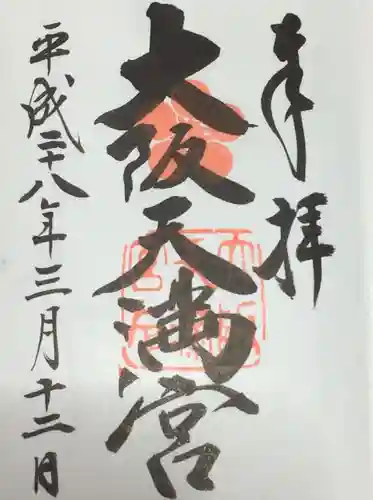 奉拝
大阪天満宮
平成二十八年三月十二日